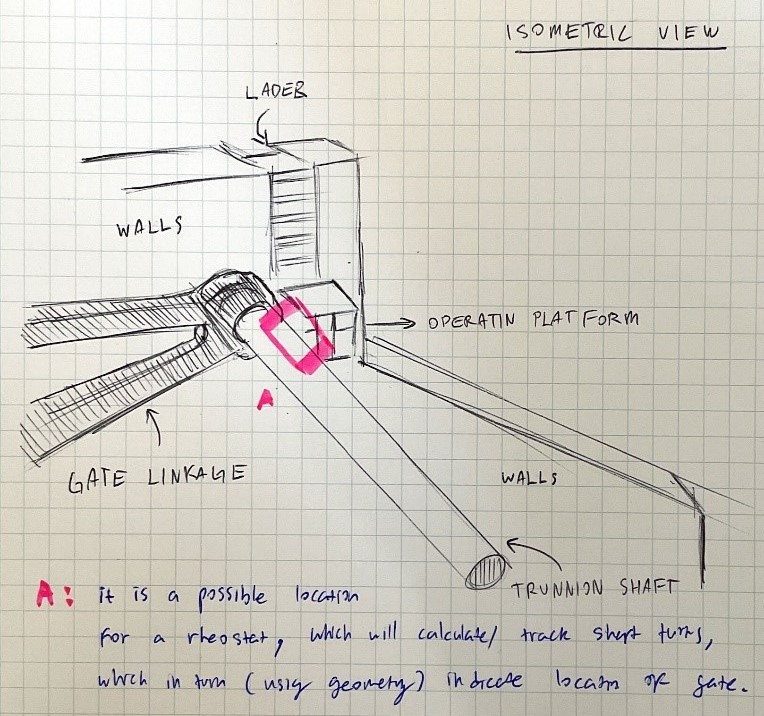 ISOMETRIC VIEW
LADER
WALLS
OPERATIN PLATFORM
GATE LINKAGE
A
WALLS
TRUNNION SHAFT
A: it is a possible location
for a rheostat, which will calculate/ track shaft turns,
which in turn (using geometry) indicate location of gate.